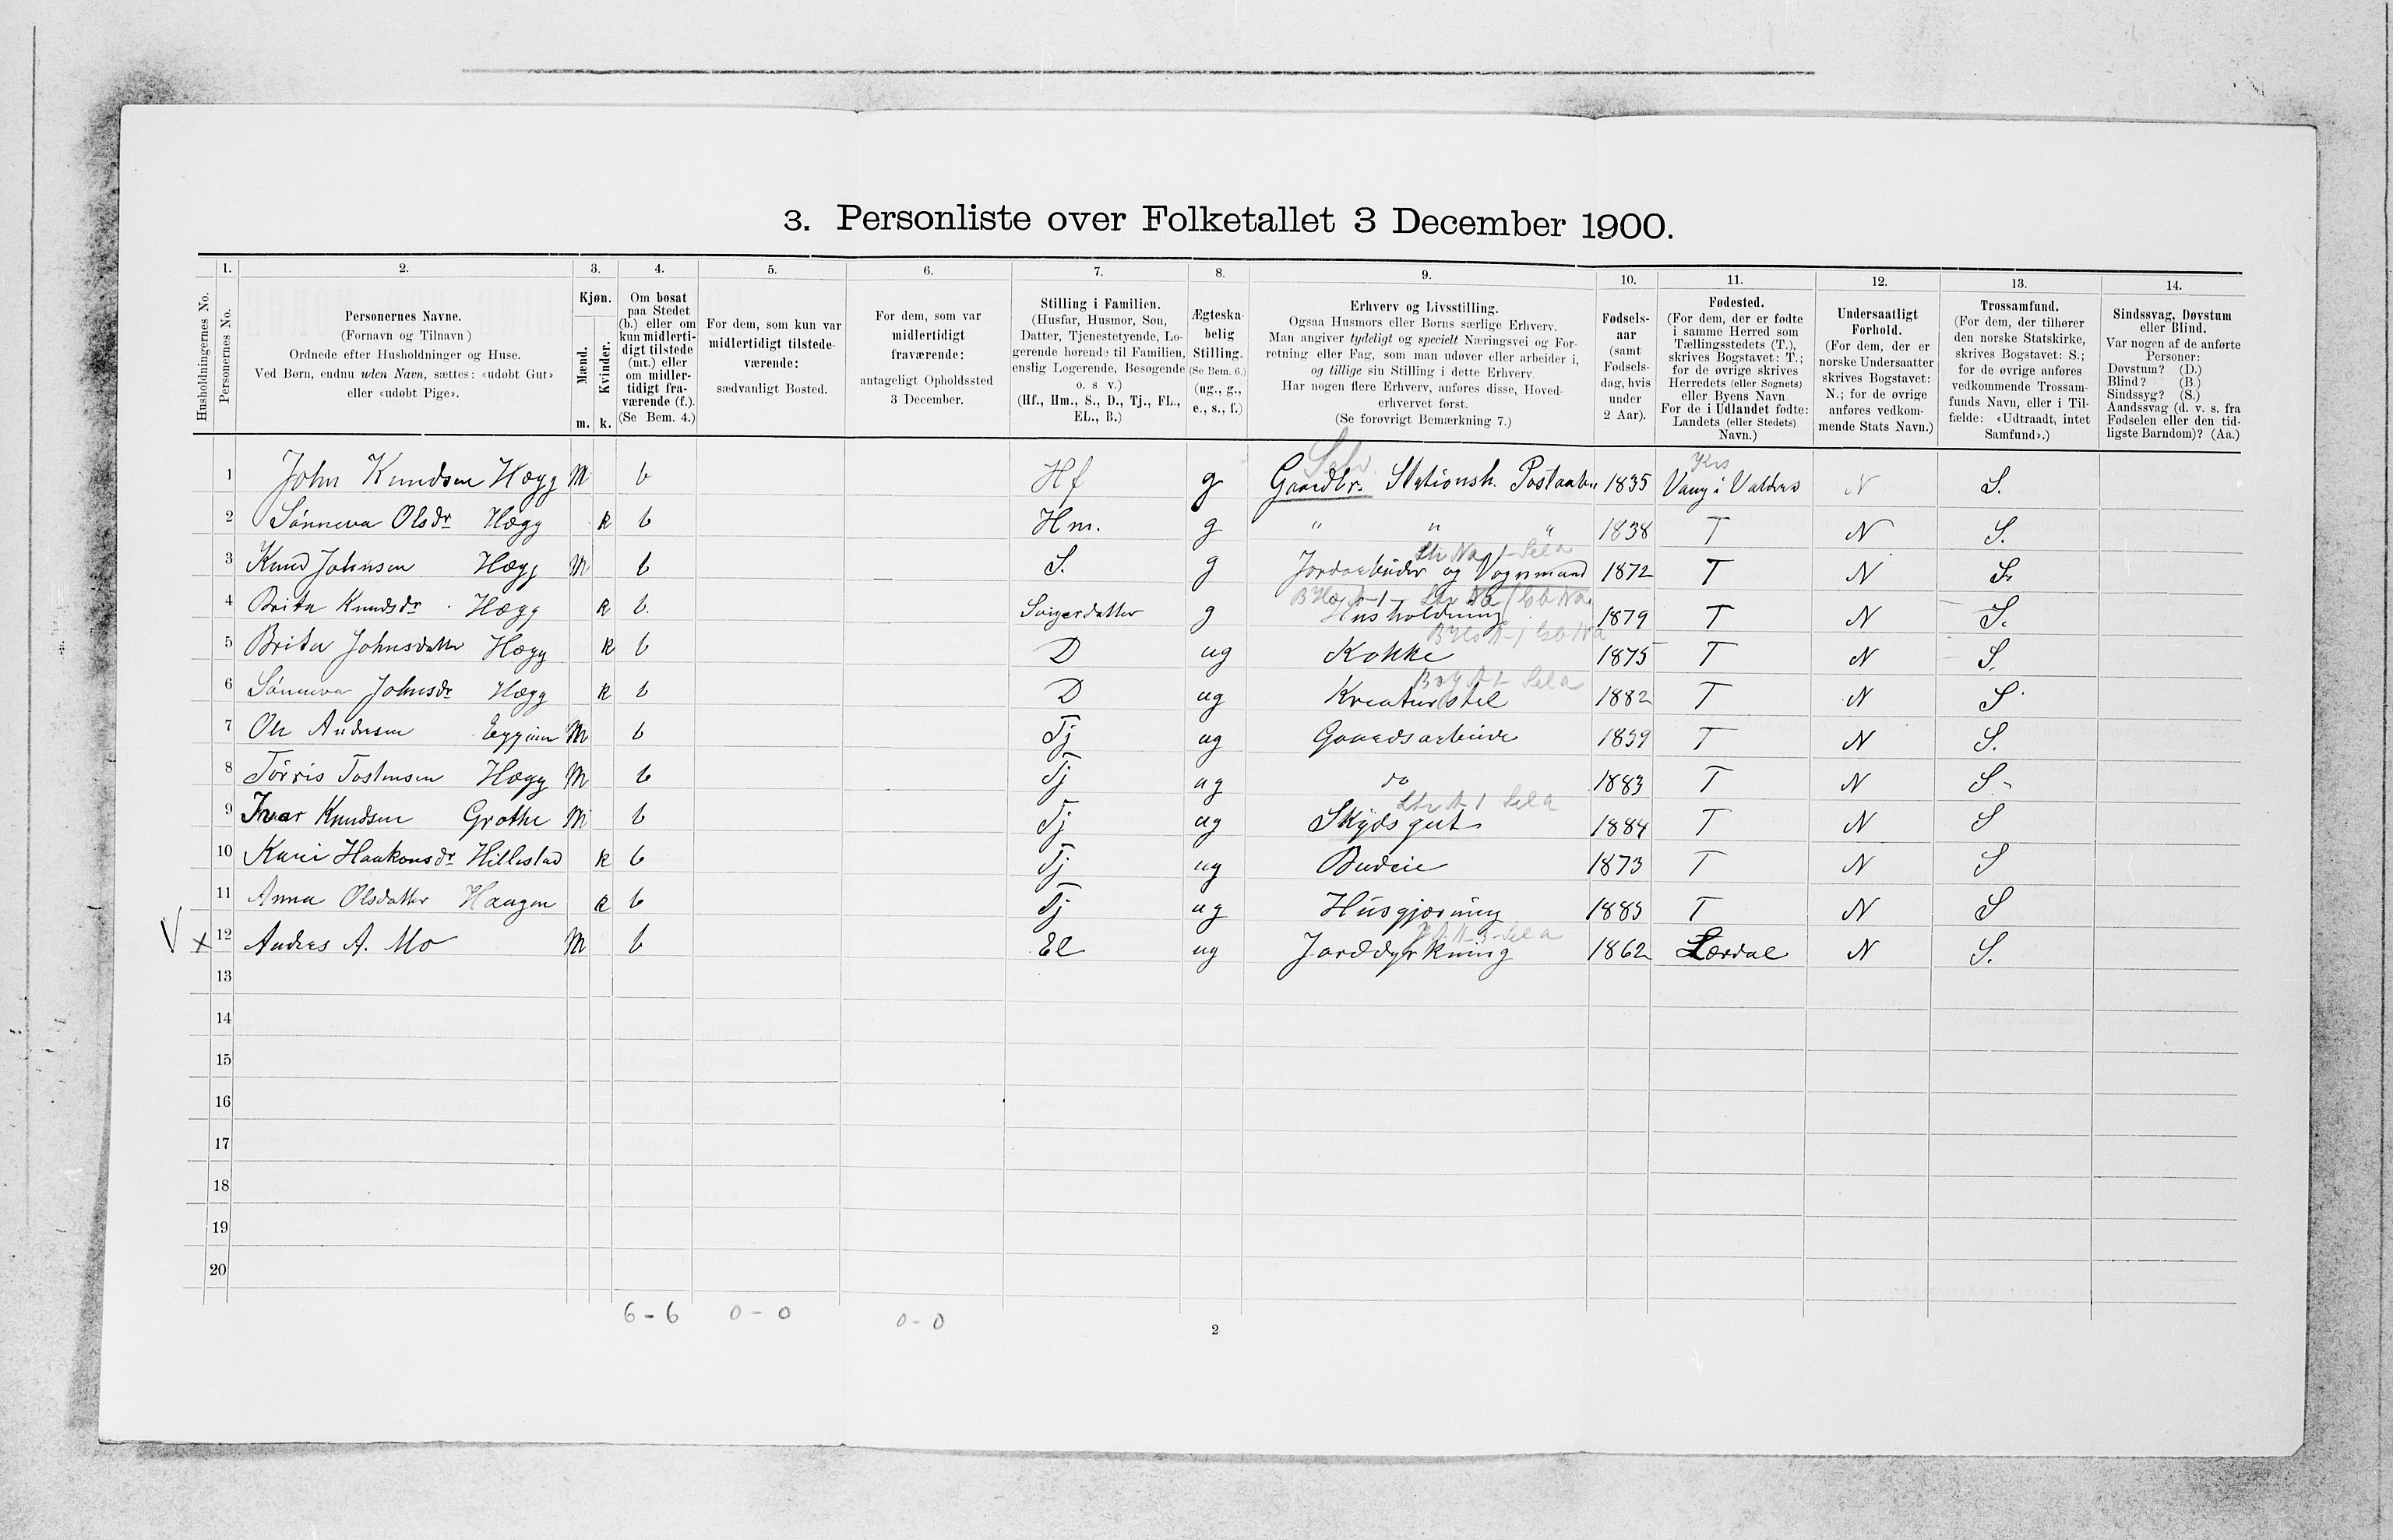 3. Personliste over Folketallet 3 December 1900.
1. 2. 3. 4. 5. 6. 7. 8. 9. 10. 11. 12. 13. 14.
Husholdningernes No.
Personernes No.
Personernes Navne.
(Fornavn og Tilnavn)
Ordnede efter Husholdninger og Huse.
Ved Børn, endnu uden Navn, sættes: «udøbt Gut»
eller «udøbt Pige».
Kjøn.
Mænd.
Kvinder.
m. k.
Om bosat
paa Stedet
(b.) eller om
kun midlerti-
digt tilstede
(mt.) eller
om midler-
tidigt fra-
værende (f.).
(Se Bem. 4.)
For dem, som kun var
midlertidigt tilstede-
værende:
sædvanligt Bosted.
For dem, som var
midlertidigt
fraværende:
antageligt Opholdssted
3 December.
Stilling i Familien.
(Husfar, Husmor, Søn,
Datter, Tjenestetyende, Lo-
gerende hørende til Familien,
enslig Logerende, Besøgende
o. s v.)
(Hf., Hm., S., D., Tj., FL.,
EL., B.)
Ægteska-
belig
Stilling.
(Se Bem. 6.)
(ug., g.,
e., s., f.)
Erhverv og Livsstilling.
Ogsaa Husmors eller Børns særlige Erhverv.
Man angiver tydeligt og specielt Næringsvei og For-
retning eller Fag, som man udøver eller arbeider i,
og tillige sin Stilling i dette Erhverv.
Har nogen flere Erhverv, anføres disse, Hoved-
erhvervet først.
(Se forøvrigt Bemærkning 7.)
Fødsels-
aar
(samt
Fødsels-
dag, hvis
under
2 Aar).
Fødested.
(For dem, der er fødte
i samme Herred som
Tællingsstedets (T.),
skrives Bogstavet: T.;
for de øvrige skrives
Herredets (eller Sognets)
eller Byens Navn.
For de i Udlandet fødte:
Landets (eller Stedets)
Navn.)
Undersaatligt
Forhold.
(For dem, der er
norske Undersaatter
skrives Bogstavet:
N.; for de øvrige
anføres vedkom-
mende Stats Navn.)
Trossamfund.
(For dem, der tilhører
den norske Statskirke,
skrives Bogstavet: S.;
for de øvrige anføres
vedkommende Trossam-
funds Navn, eller i Til-
fælde: «Udtraadt, intet
Samfund».)
Sindssvag, Døvstum
eller Blind.
Var nogen af de anførte
Personer:
Døvstum? (D.)
Blind? (B.)
Sindssyg? (S.)
Aandssvag (d. v. s. fra
Fødselen eller den tid-
ligste Barndom)? (Aa.)
1 John Knudsen Hægg M b Hf g Gaardbr. Stationsh. Postaabn 1835 Vang i Valdres N S.
2 Sønneva Olsdr Hægg k b Hm. g " " " 1838 T N S.
3 Knud Johnsen Hægg M b S. g Jordarbeider og Vognmand 1872 T N S.
4 Brita Knudsdr Hægg k b. Svigerdatter g Husholdning 1879 T N S.
5 Brita Johnsdatter Hægg k b D ug Kokke 1875 T N S.
6 Sønneva Johnsdr Hægg k b D ug Kreaturstel 1882 T N S
7 Ole Andersen Eggum M b Tj ug Gaardsarbeide 1859 T N S.
8 Tørris Tostensen Hægg M b Tj ug do 1883 T N S
9 Ivar Knudsen Grothe M b Tj ug Skydsgut 1884 T N S
10 Kari Haakonsdr Hillestad k b Tj ug Budeie 1873 T N S
11 Anna Olsdatter Haugen k b Tj ug Husgjerning 1885 T N S
V x 12 Andres A. Mo M b El ug Jorddyrkning 1862 Lærdal N S.
13
14
15
16
17
18
19
20
6 - 6 0 - 0 0 - 0
2